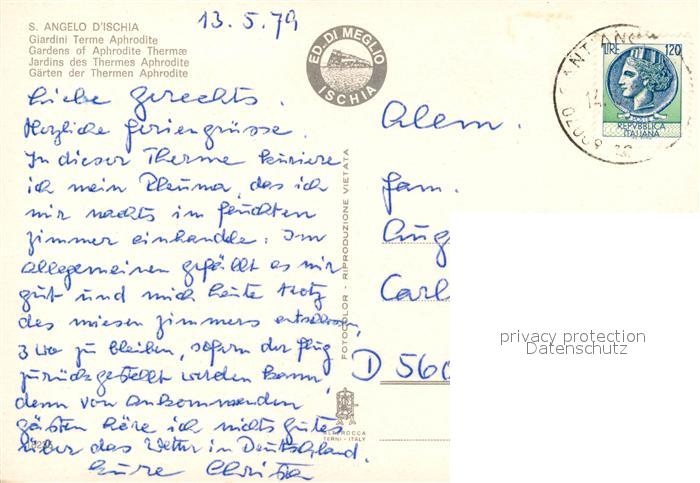 13.5.79
S. ANGELO D'ISCHIA
Giardini Terme Aphrodite
Gardens of Aphrodite Thermæ
Jardins des Thermes Aphrodite
Gärten der Thermen Aphrodite
ED. DI MEGLIO
ISCHIA
LIRE 120
REPVBBLICA
ITALIANA
80070
Liebe Gerechts.
Herzliche Feriengrüsse.
In dieser Therme kuriere
ich mein Rheuma, das ich
mir nachts im feuchten
Zimmer einhandle. Im
allgemeinen gefällt es mir
gut und mich heute trotz
des miesen Zimmers entschlossen,
3 Wo zu bleiben, sofern der Flug
zurückgestellt werden kann,
denn von ankommenden
Gästen höre ich nichts Gutes
über das Wetter in Deutschland.
Eure Christa
FOTOCOLOR - RIPRODUZIONE VIETATA
TERNI - ITALY
Alem.
Fam.
Aug
Carl
D 560
privacy protection
Datenschutz